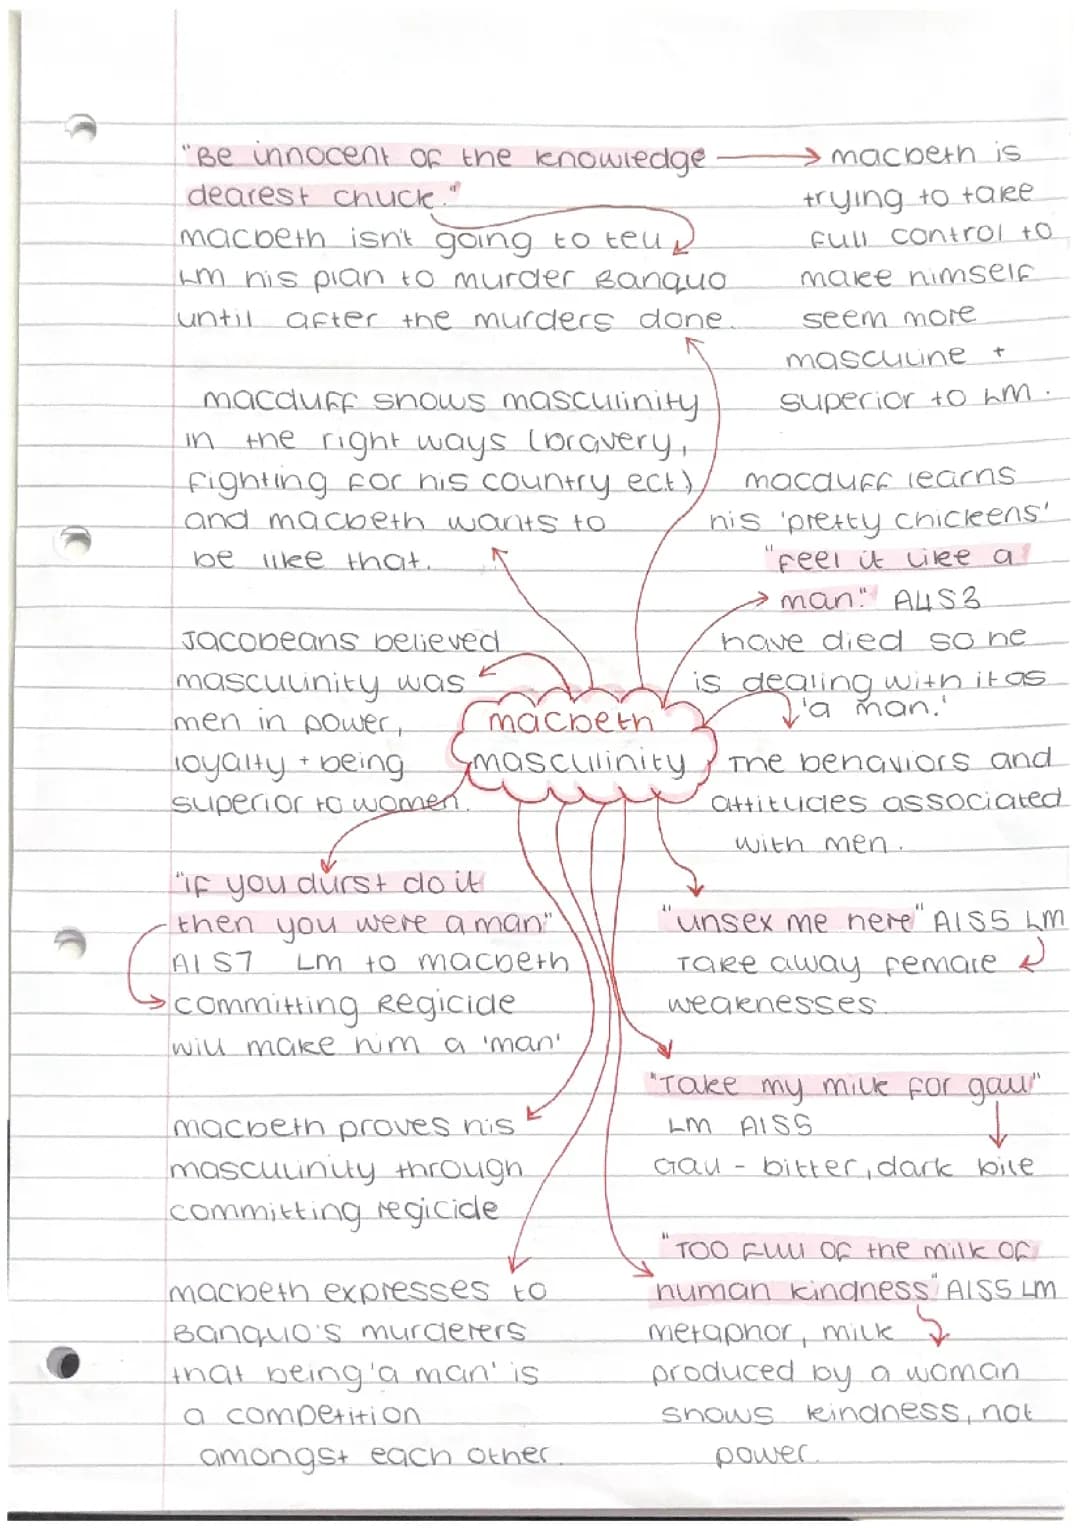 "Be innocent of the knowledge
dearest chuck."
macbeth isn't going to tell
LM his plan to murder Banquo
until after the murders done.
macbeth is
trying to take
full control to
make himself
seem more
masculine +
superior to LM.
macduff shows masculinity
in the right ways (bravery,
fighting for his country ect)
and macbeth wants to
be like that.
macduff learns
his 'pretty chickens'
"feel it like a
man." A4S3
have died so he
is dealing with it as
'a man.'
Jacobeans believed
masculinity was
men in power,
loyalty + being
superior to women.
macbeth
masculinity
The behaviors and
attitudes associated
with men.
"if you durst do it
then you were a man"
A1 S7 LM to macbeth
committing Regicide
will make him a 'man'
"unsex me here" A1S5 LM
Take away female
weaknesses.
macbeth proves his
masculinity through
committing regicide
"Take my milk for gall"
LM A1S5
Gall - bitter, dark bile
macbeth expresses to
Banquo's murderers
that being 'a man' is
a competition
amongst each other.
"Too full of the milk of
human kindness" A1S5 LM
metaphor, milk
produced by a woman
shows kindness, not
power.